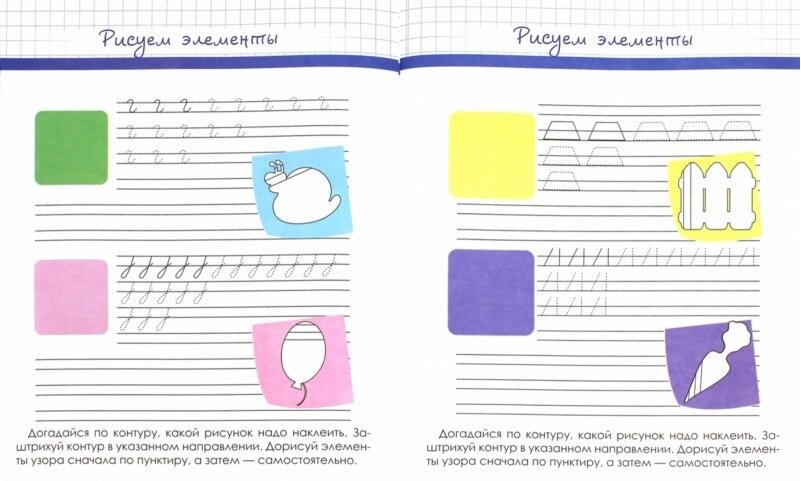 Рисуем элементы
Догадайся по контуру, какой рисунок надо наклеить. За-
штрихуй контур в указанном направлении. Дорисуй элемен-
ты узора сначала по пунктиру, а затем — самостоятельно.
Рисуем элементы
Догадайся по контуру, какой рисунок надо наклеить. За-
штрихуй контур в указанном направлении. Дорисуй элемен-
ты узора сначала по пунктиру, а затем — самостоятельно.